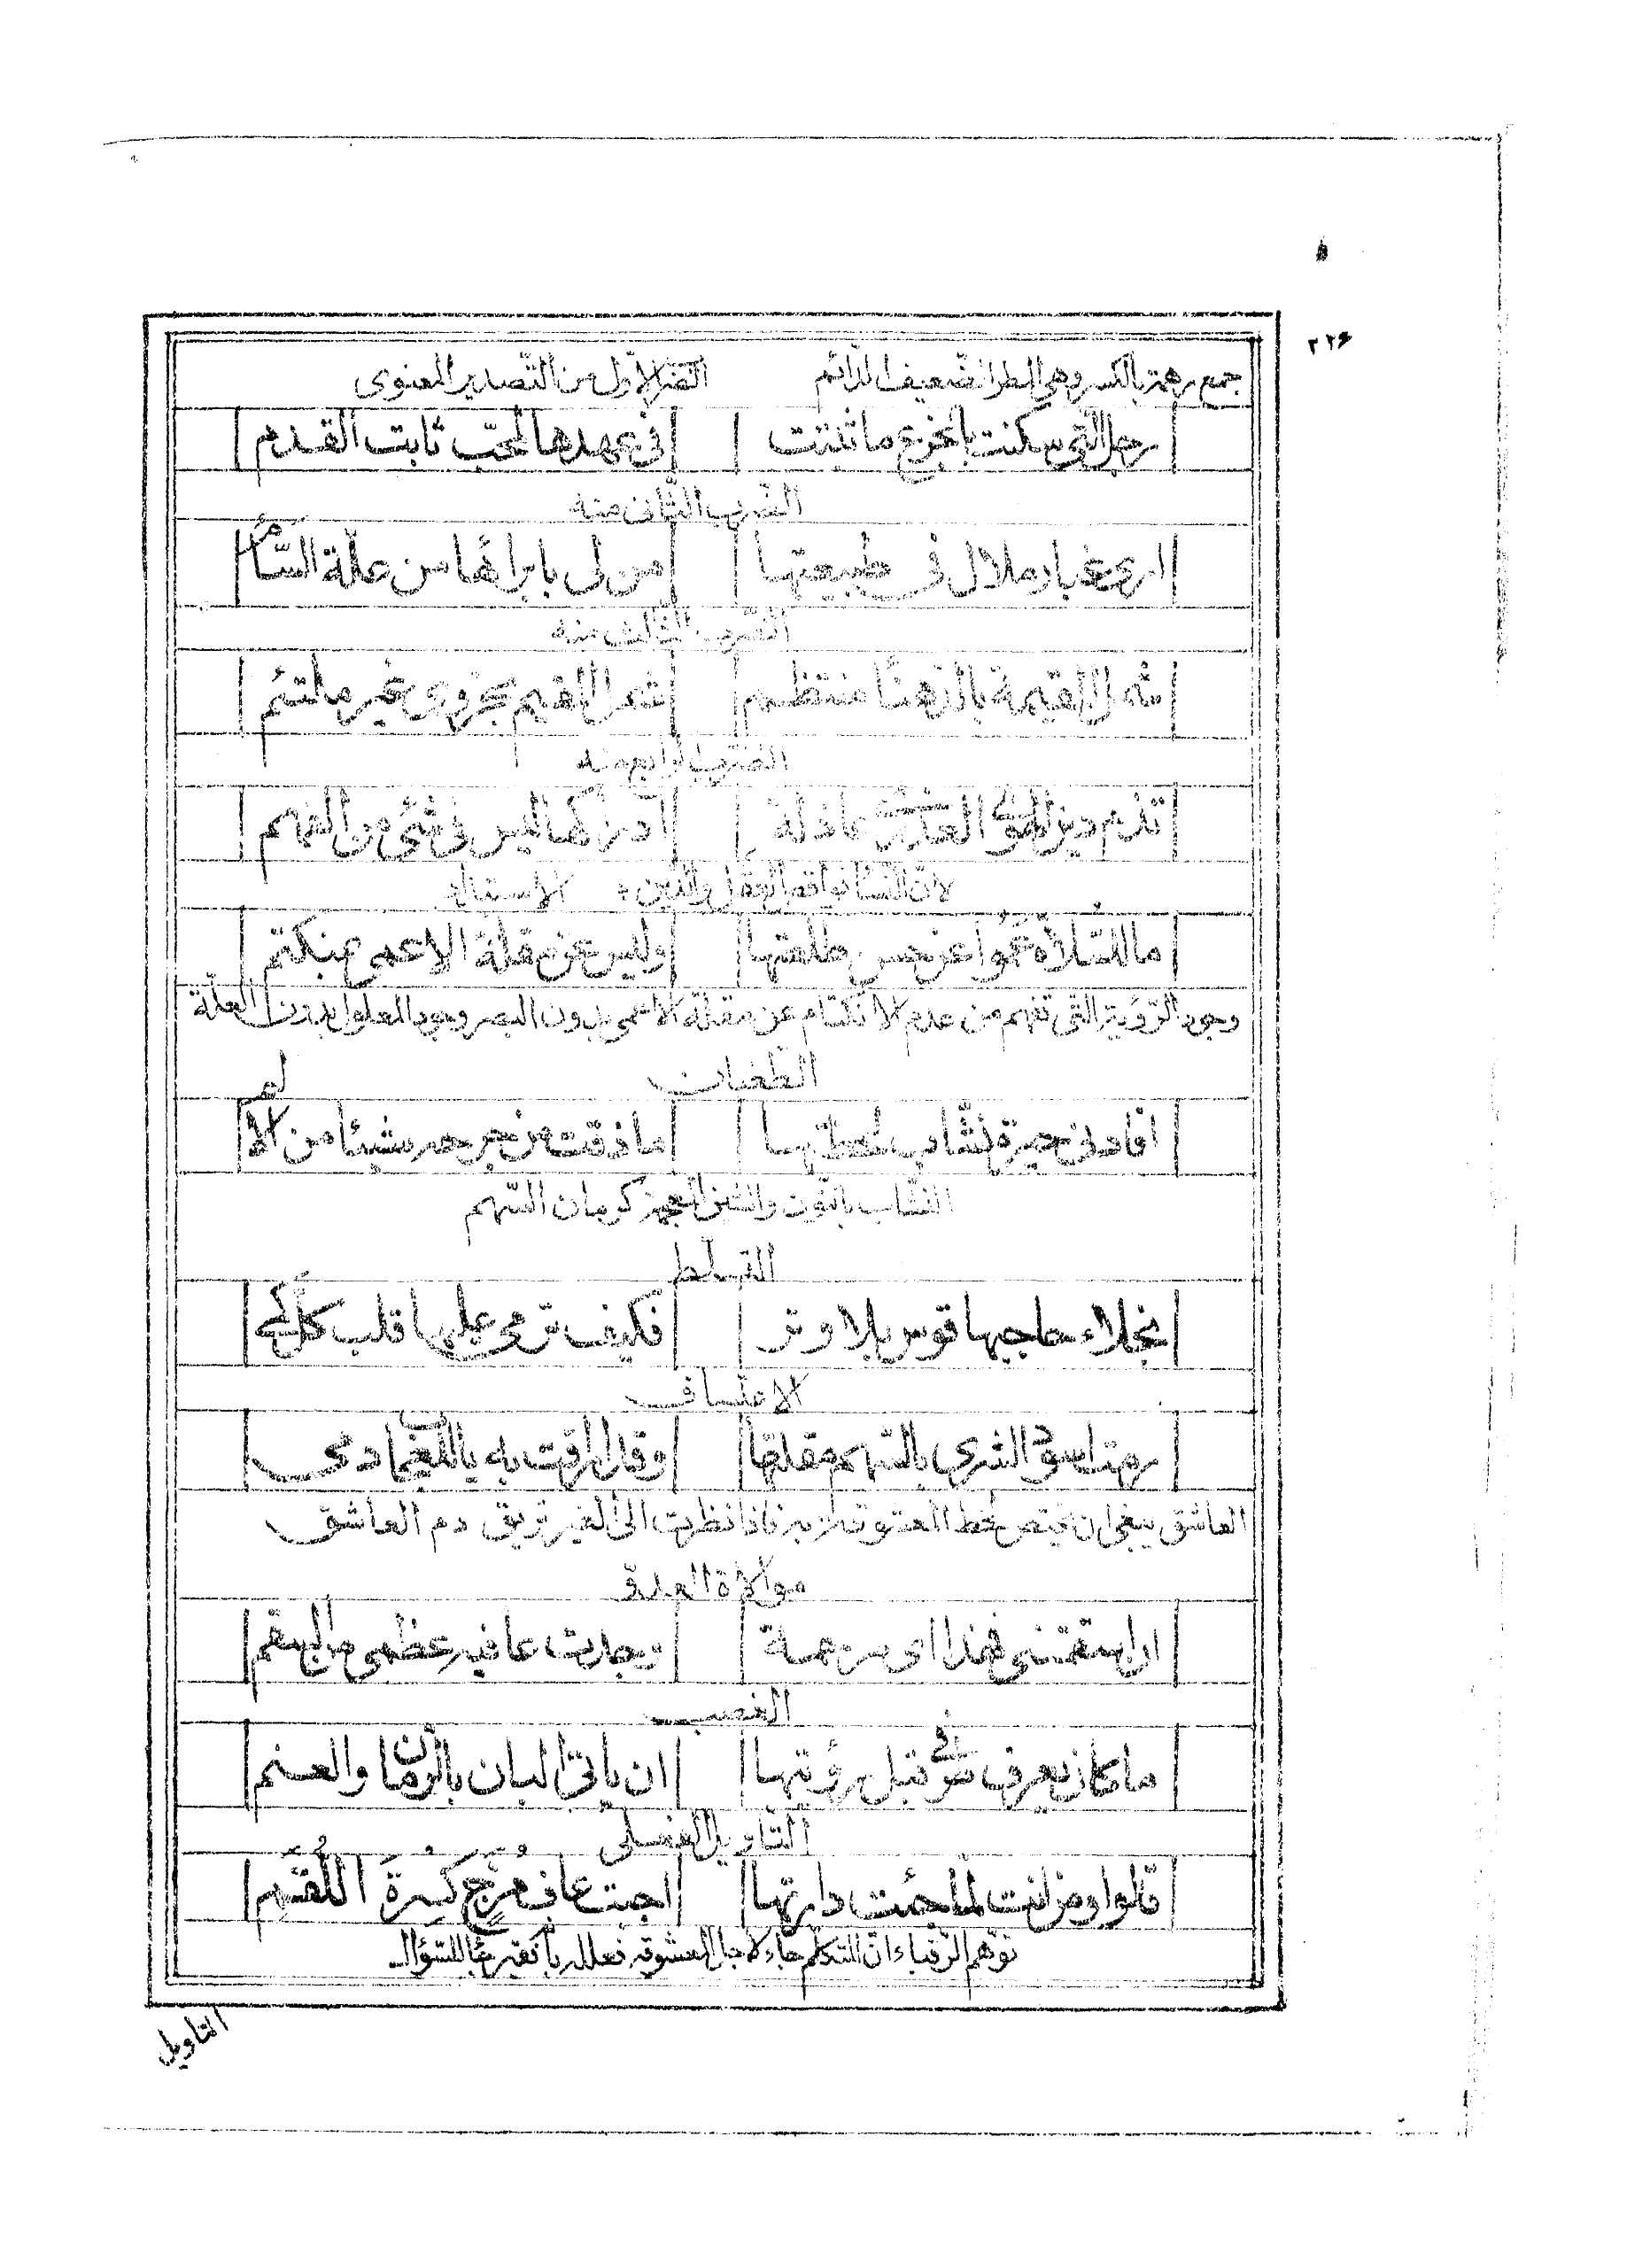 ٢٢٦
جمع رهمة بالكسر وهى المطر الضعيف الدائم الضرب الاول من التصدير المعنوى
التى سكنت ما ثبتت فى عهدها لمحبّ ثابت القدم
الضرب الثانى منه
ارى غبار ملال فى طبيعتها من لى بابرائها من علّة السّأم
الضرب الثالث منه
شمل المقيمة بالزهنا منتظم شمل المقيم بحزوى غير ملتئم
الضرب الرابع منه
تذم دين الهوى عاذلة ليس فى شئ من الفهم
لانّ النسا نواقص العقل والدين الاستبداد
ما للسّلاة عموا عن طلعتها وليس عن مقلة الاعمى بمنكتم
وجود الرّؤية التى تفهم من عدم الانكتام عن مقلة الاعمى بدون البصر وجود المعلول بدون العلّة
الطغيان
افادنى حيرة نشّاب لحظتها ما ذقت من جرحه شيئا من الألم
النشّاب بالنون والشين المعجمة كرمان السّهم
التسلط
نجلاء حاجبها قوس بلا وتر فكيف ترمى عليها قلب كلّ كمى
الاعتساف
رمت اسود الشرى بالسّهم مقلتها وقال ارقت به يا للغيد دمى
العاشق ينبغى ان يختص لحظ المعشوقة به فاذا نظرت الى الغير تريق دم العاشق
موالاة العدوّ
ان اسقمتنى فهذا اى مرحمة وجدت عافية عظمى من السقم
الغصب
ما كان يعرف شوقى قبل رؤيتها ان ياتى البان بالرّمّان والعنم
التاويل الفعلى
قالوا ومن انت لمّا جئت دارتها اجبت عاف مرجّ كسرة اللّقم
توهم الرّقباء انّ المتكلم جاء لاجل المعشوقة فعلل بانه فقير جاء للسّؤال
التاويل